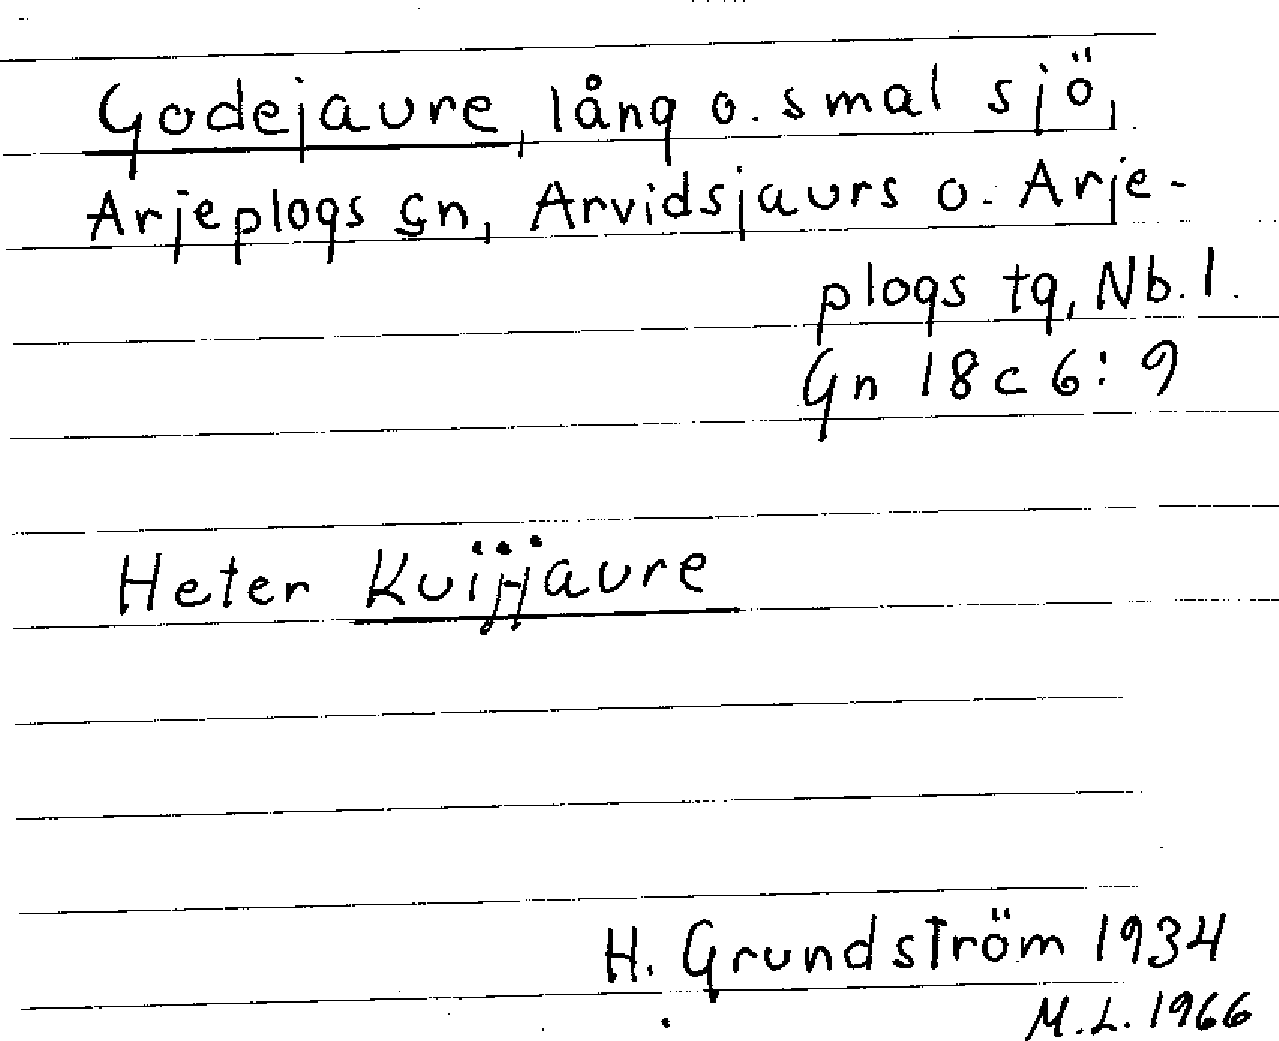 Godejaure, lång o. smal sjö,
Arjeplogs sn, Arvidsjaurs o. Arje-
plogs tg, Nb. l.
Gn 18c 6:9
Heter Kuijjaure
H. Grundström 1934
M.L. 1966